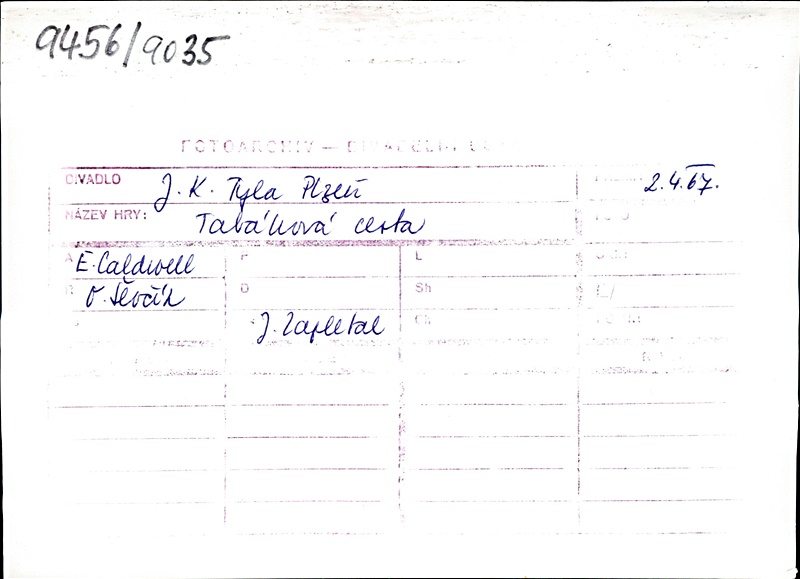 9456/9035
FOTOARCHIV — DIVADELNÍ
DIVADLO J. K. Tyla Plzeň 2.4.67.
NÁZEV HRY: Tabáková cesta
A E. Caldwell F L
R O. Ševčík D Sh
J. Zapletal Ch